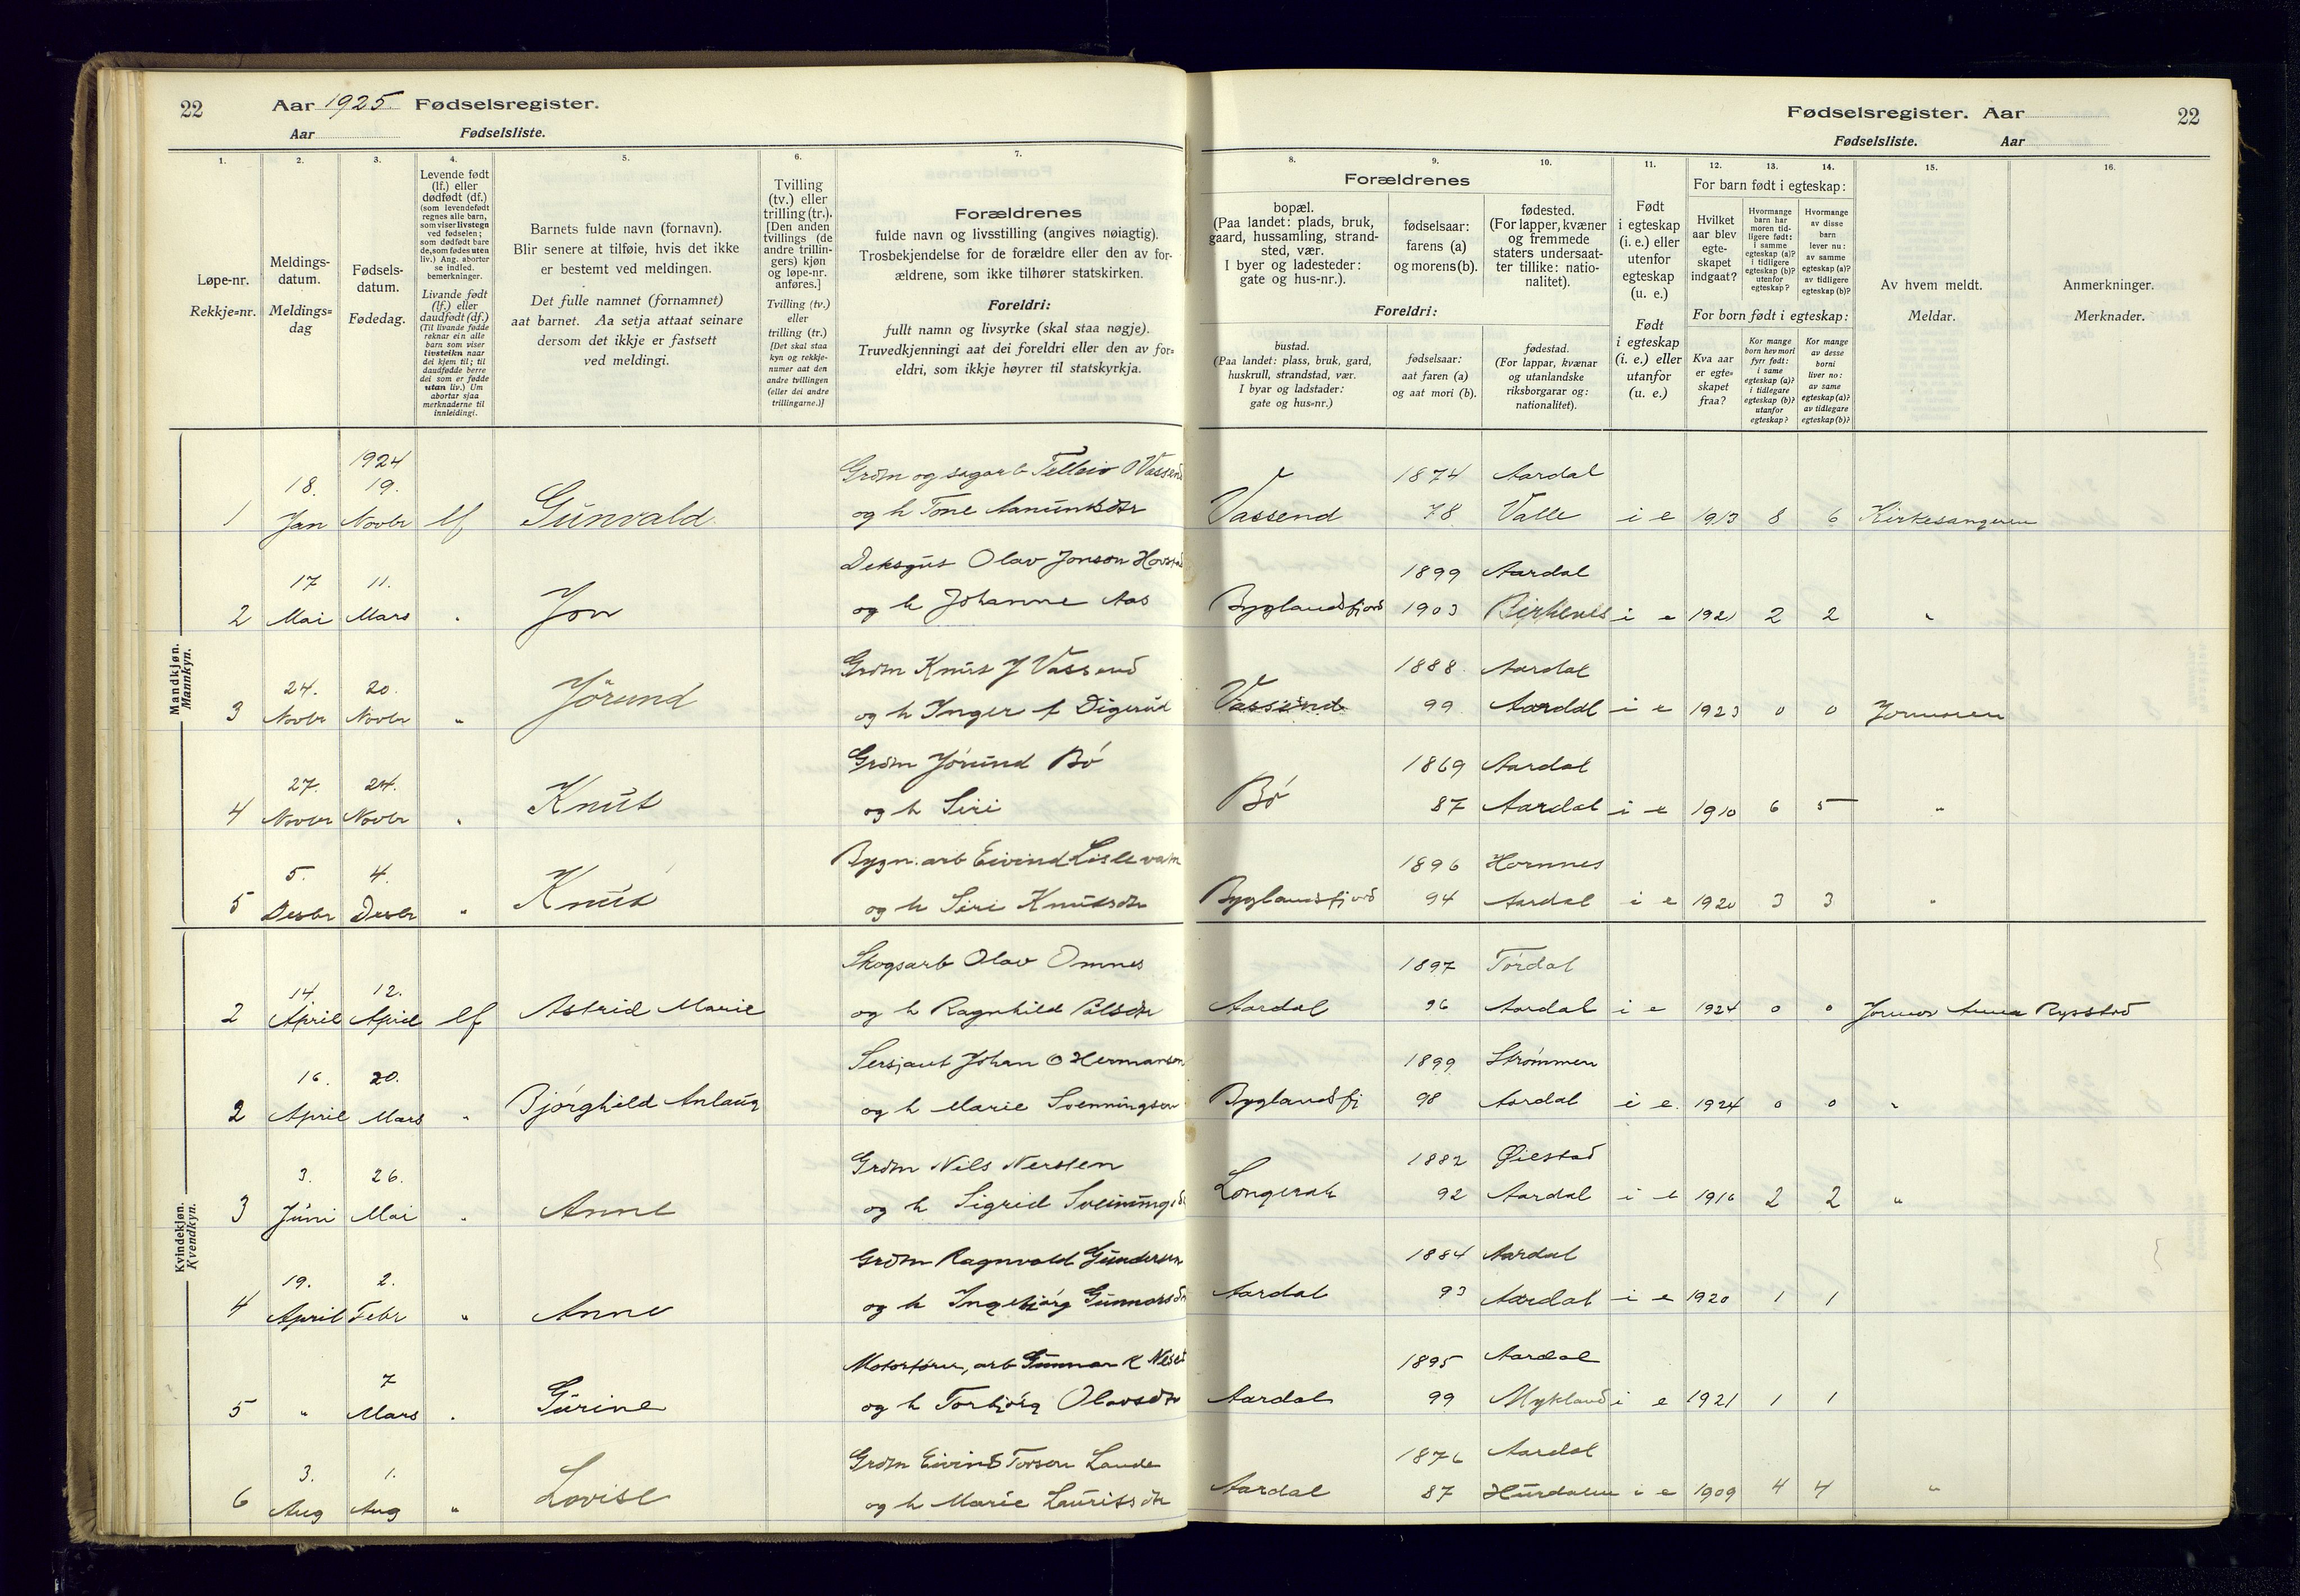 22 Aar 1925. Fødselsregister.
Aar Fødselsliste.
Fødselsregister. Aar 22
Fødselsliste. Aar
1. 2. 3. 4. 5. 6. 7. 8. 9. 10. 11. 12. 13. 14. 15. 16.
Løpe-nr.
Rekkje=nr.
Meldings-
datum.
Meldings=
dag
Fødsels-
datum.
Fødedag.
Levende født
(lf.) eller
dødfødt (df.)
(som levendefødt
regnes alle barn,
som viser livstegn
ved fødselen;
som dødfødt bare
de, som fødes uten
liv.) Ang. aborter
se indled.
bemerkninger.
Livande født
(lf.) eller
daudfødt (df.)
(Til livande fødde
reknar ein alle
barn som viser
livsteikn naar
dei kjem til; til
daudfødde berre
dei som er fødde
utan liv.) Um
abortar sjaa
merknaderne til
innleidingi.
Barnets fulde navn (fornavn).
Blir senere at tilføie, hvis det ikke
er bestemt ved meldingen.
Det fulle namnet (fornamnet)
aat barnet. Aa setja attaat seinare
dersom det ikkje er fastsett
ved meldingi.
Tvilling
(tv.) eller
trilling (tr.).
[Den anden
tvillings (de
andre trillin-
gers) kjøn
og løpe-nr.
anføres.]
Tvilling (tv.)
eller
trilling (tr.)
[Det skal staa
kyn og rekkje-
numer aat den
andre tvillingen
(eller dei andre
trillingarne.)]
Forældrenes
fulde navn og livsstilling (angives nøiagtig).
Trosbekjendelse for de forældre eller den av for-
ældrene, som ikke tilhører statskirken.
Foreldri:
fullt namn og livsyrke (skal staa nøgje).
Truvedkjenningi aat dei foreldri eller den av for=
eldri, som ikkje høyrer til statskyrkja.
Forældrenes
bopæl.
(Paa landet: plads, bruk,
gaard, hussamling, strand-
sted, vær.
I byer og ladesteder:
gate og hus-nr.).
fødselsaar:
farens (a)
og morens (b).
fødested.
(For lapper, kvæner
og fremmede
staters undersaat-
ter tillike: natio-
nalitet).
Foreldri:
bustad.
(Paa landet: plass, bruk, gard,
huskrull, strandstad, vær.
I byar og ladstader:
gate og hus=nr.)
fødselsaar:
aat faren (a)
og aat mori (b).
fødestad.
(For lappar, kvænar
og utanlandske
riksborgarar og:
nationalitet).
Født
i egteskap
(i. e.) eller
utenfor
egteskap
(u. e.)
Født
i egteskap
(i. e.) eller
utanfor
(u. e.)
For barn født i egteskap:
Hvilket
aar blev
egte-
skapet
indgaat?
Hvormange
barn har
moren tid-
ligere født:
i samme
egteskap (a)?
i tidligere
egteskap (b)?
utenfor
egteskap?
Hvormange
av disse
barn
lever nu:
av samme
egteskap (a)?
av tidligere
egteskap (b)?
For born født i egteskap:
Kva aar
er egte=
skapet
fraa?
Kor mange
born hev mori
fyrr født:
i same
egteskap (a)?
i tidlegare
egteskap (b)?
utanfor
egteskap?
Kor mange
av desse
borni
liver no:
av same
egteskap (a)?
av tidlegare
egteskap (b)?
Av hvem meldt.
Meldar.
Anmerkninger.
Merknader.
Mandkjøn.
Mannkyn.
1924
18. 19. Grdm og sagarb Telleiv O Vassend 1874 Aardal
1 Jan Novbr lf Gunvald og h Tone Aanundsdtr Vassend 78 Valle i e 1913 8 6 Kirkesangeren
17 11. Olav Jonson 1899 Aardal
2 Mai Mars " Jon og h Johanne Aas Byglandsfjord 1903 Birkenes i e 1921 2 2 "
24. 20. Grdm Knut J Vassend 1888 Aardal
3 Novbr Novbr " Jørund og h Inger f Digerud Vassend 99 Aardal i e 1923 0 0 Jormoren
27. 24. Grdm Jørund Bø 1869 Aardal
4 Novbr Novbr " Knut og h Siri Bø 87 Aardal i e 1910 6 5 "
5. 4. Bygn.arb Eivind 1896 Hornnes
5 Desbr Desbr " Knut og h Siri Knutsdtr Byglandsfjord 94 Aardal i e 1920 3 3 "
Kvindekjøn.
Kvendkyn.
14 12. Skogsarb Olav Omnes 1897 Tørdal
2 April April lf Astrid Marie og h Ragnhild Pålsdtr Aardal 96 Aardal i e 1924 0 0 Jormor Anna Rysstad
16. 20. Sersjant Johan O Hermansen 1899 Strømmen
2 April Mars " Bjørghild Anlaug og h Marie Svenningsen Byglandsfj 98 Aardal i e. 1924 0 0 "
3. 26. Grdm Nils Nersten 1882 Øiestad
3 Juni Mai " Anne og h Sigrid Longerak 92 Aardal i e 1916 2 2 "
19. 2. Grdm Ragnvald Gundersen 1884 Aardal
4 April Febr " Anne og h Ingebjørg Gunnarsd Aardal 93 Aardal i e 1920 1 1
7 Motorfører, arb Gunnar K Neset 1895 Aardal
5 " Mars " Gurine og h Torbjørg Olavsdtr Aardal 99 Mykland i e 1921 1 1
3. 1. Grdm Eivind Torson Lande 1876 Aardal
6 Aug Aug " Lovise og h Marie Lauritsdtr Aardal 87 Hurdalen i e 1909 4 4 "